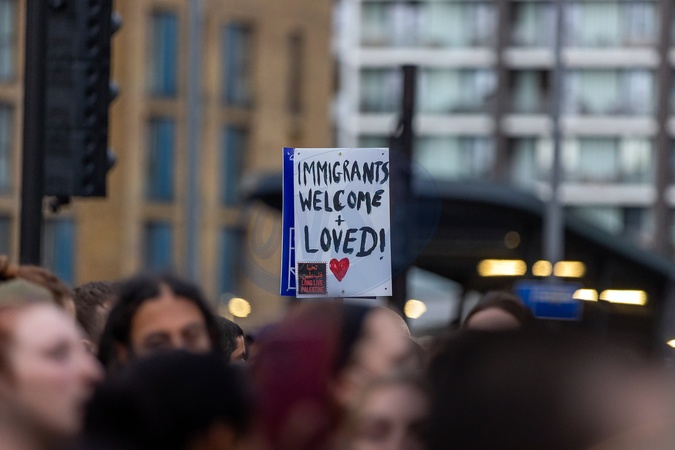 IMMIGRANTS
WELCOME
+
LOVED!
LONG LIVE
PALESTINE